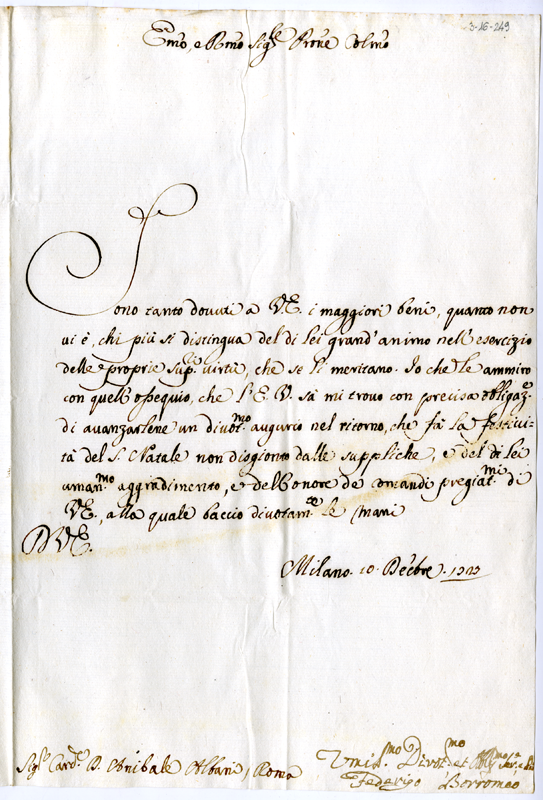 3-26-249
Emo, e Rmo Sigr Prone Colmo
Sono tanto dovuti a V.E. i maggiori beni, quanto non
vi è, chi più si distingua del di lei grand' animo nell'esercizio
delle proprie supe virtù, che se li meritano. Io che le ammiro
con quell'ossequio, che l'E.V. sà mi trovo con precisa obligaze
di avanzarlene un divotmo augurio nel ritorno, che fà la festivi-
tà del S. Natale non disgionto dalle suppliche, e del di lei
umanmo aggradimento, e dell'onore de comandi pregiatmi di
V.E., alla quale baccio divotamte le mani
D V.E.
Milano 10 Decbre 1723
Sigr Cardle D. Anibale Albani, Roma
Umilmo Divotmo et
Federigo Borromeo